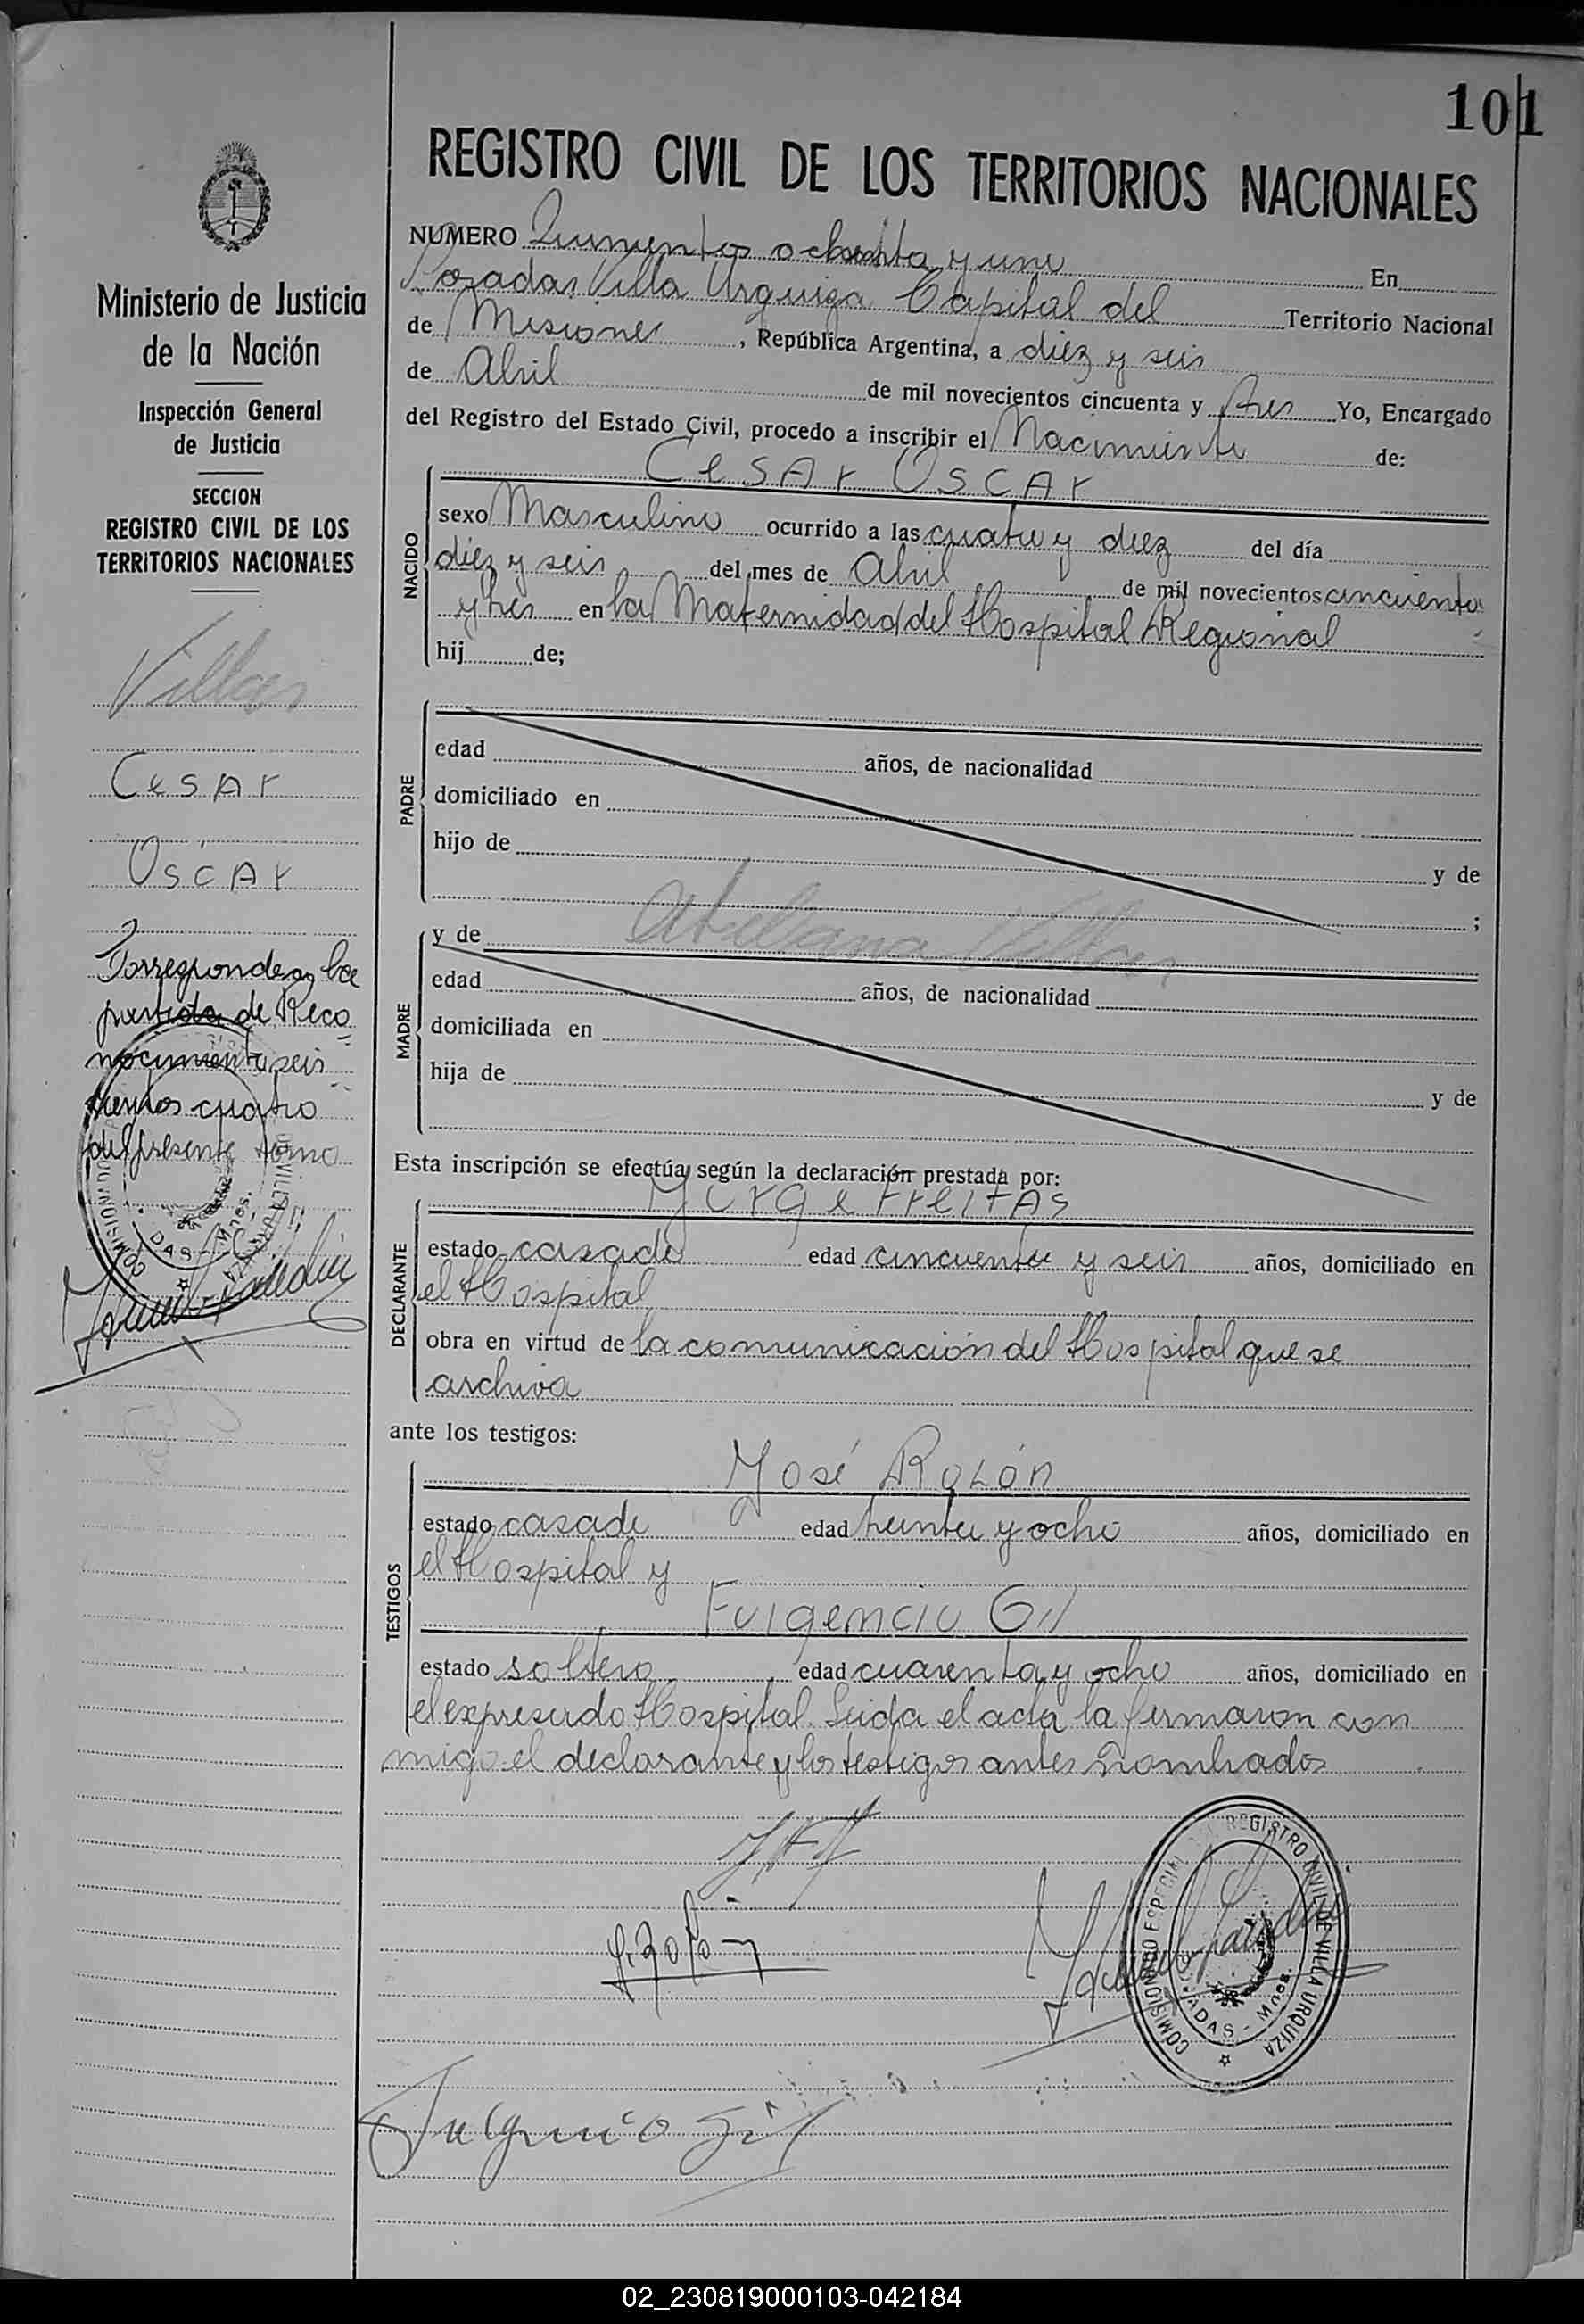 101
REGISTRO CIVIL DE LOS TERRITORIOS NACIONALES
Ministerio de Justicia
de la Nación
Inspección General
de Justicia
SECCION
REGISTRO CIVIL DE LOS
TERRITORIOS NACIONALES
Villar
Cesar
Oscar
Corresponde a la
partida de Reco
nocimiento seis
cientos cuatro
del presente tomo
NUMERO Quinientos ochenta y uno En
Posadas Villa Urquiza Capital del Territorio Nacional
de Misiones, República Argentina, a diez y seis
de Abril de mil novecientos cincuenta y tres Yo, Encargado
del Registro del Estado Civil, procedo a inscribir el Nacimiento de:
Cesar Oscar
NACIDO
sexo Masculino ocurrido a las cuatro y diez del día
diez y seis del mes de Abril de mil novecientos cincuenta
y tres en la Maternidad del Hospital Regional
hij de;
PADRE
edad años, de nacionalidad
domiciliado en
hijo de y de
;
MADRE
y de Villar
edad años, de nacionalidad
domiciliada en
hija de y de
Esta inscripción se efectúa según la declaración prestada por:
DECLARANTE
Jorge Freitas
estado casado edad cincuenta y seis años, domiciliado en
el Hospital
obra en virtud de la comunicación del Hospital que se
archiva
ante los testigos:
TESTIGOS
José Rolón
estado casado edad treinta y ocho años, domiciliado en
el Hospital y
Fulgencio Gil
estado soltero edad cuarenta y ocho años, domiciliado en
el expresado Hospital. Leida el acta la firmaron con
migo el declarante y los testigos antes nombrados
COMISIONADO ESPECIAL DEL REGISTRO CIVIL DE VILLA URQUIZA
POSADAS - Mnes.
Fulgencio Gil
02_230819000103-042184